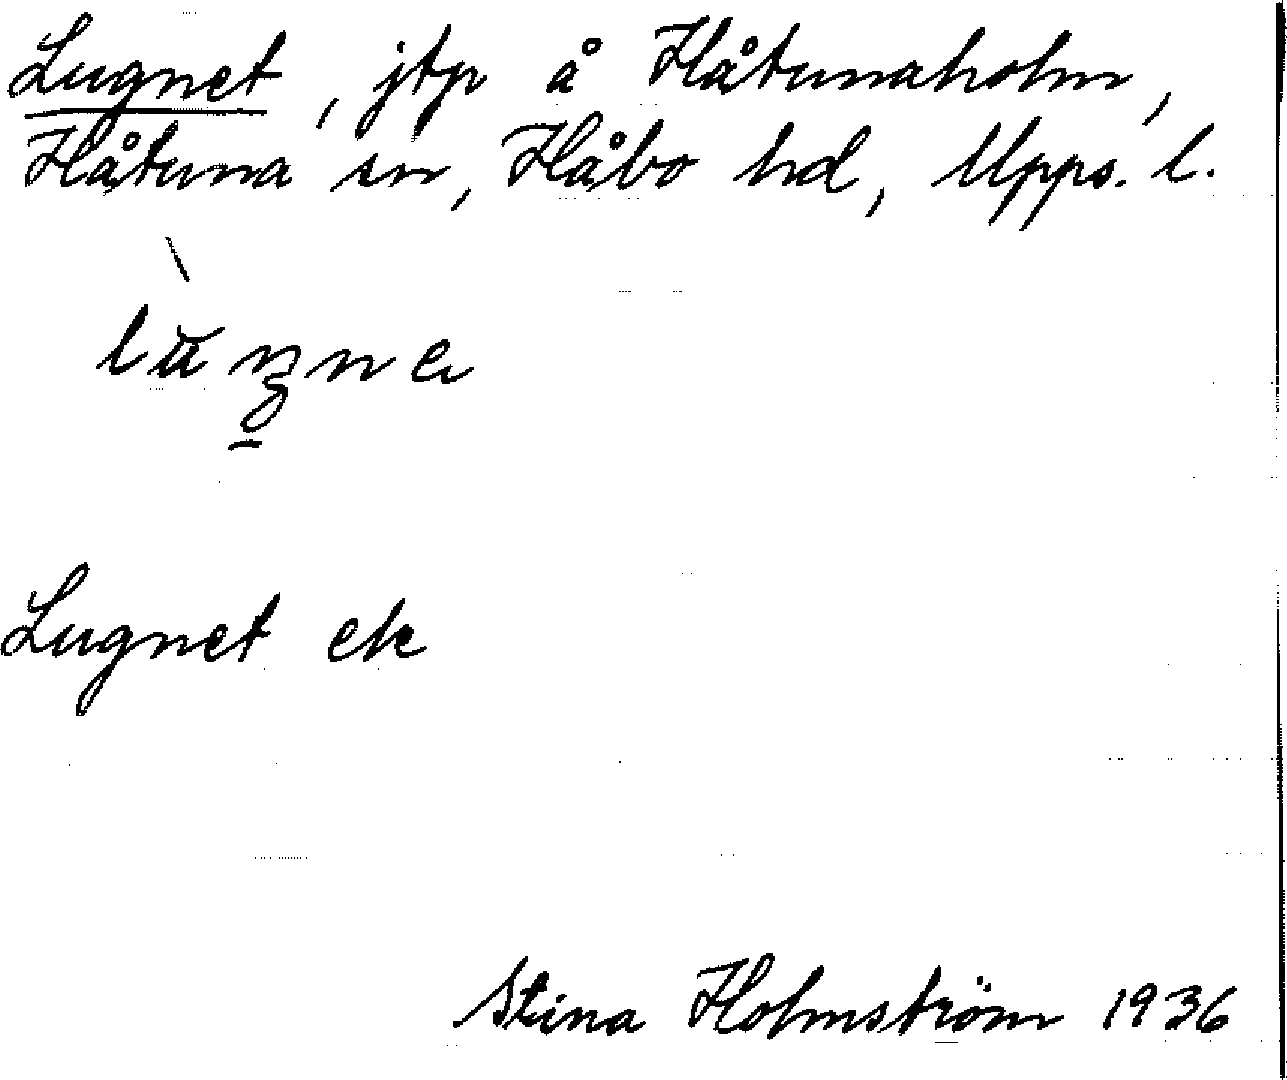 Lugnet, jtp å Håtunaholm,
Håtuna sn, Håbo hd, Upps. l.
Lugnet ek
Stina Holmström 1936